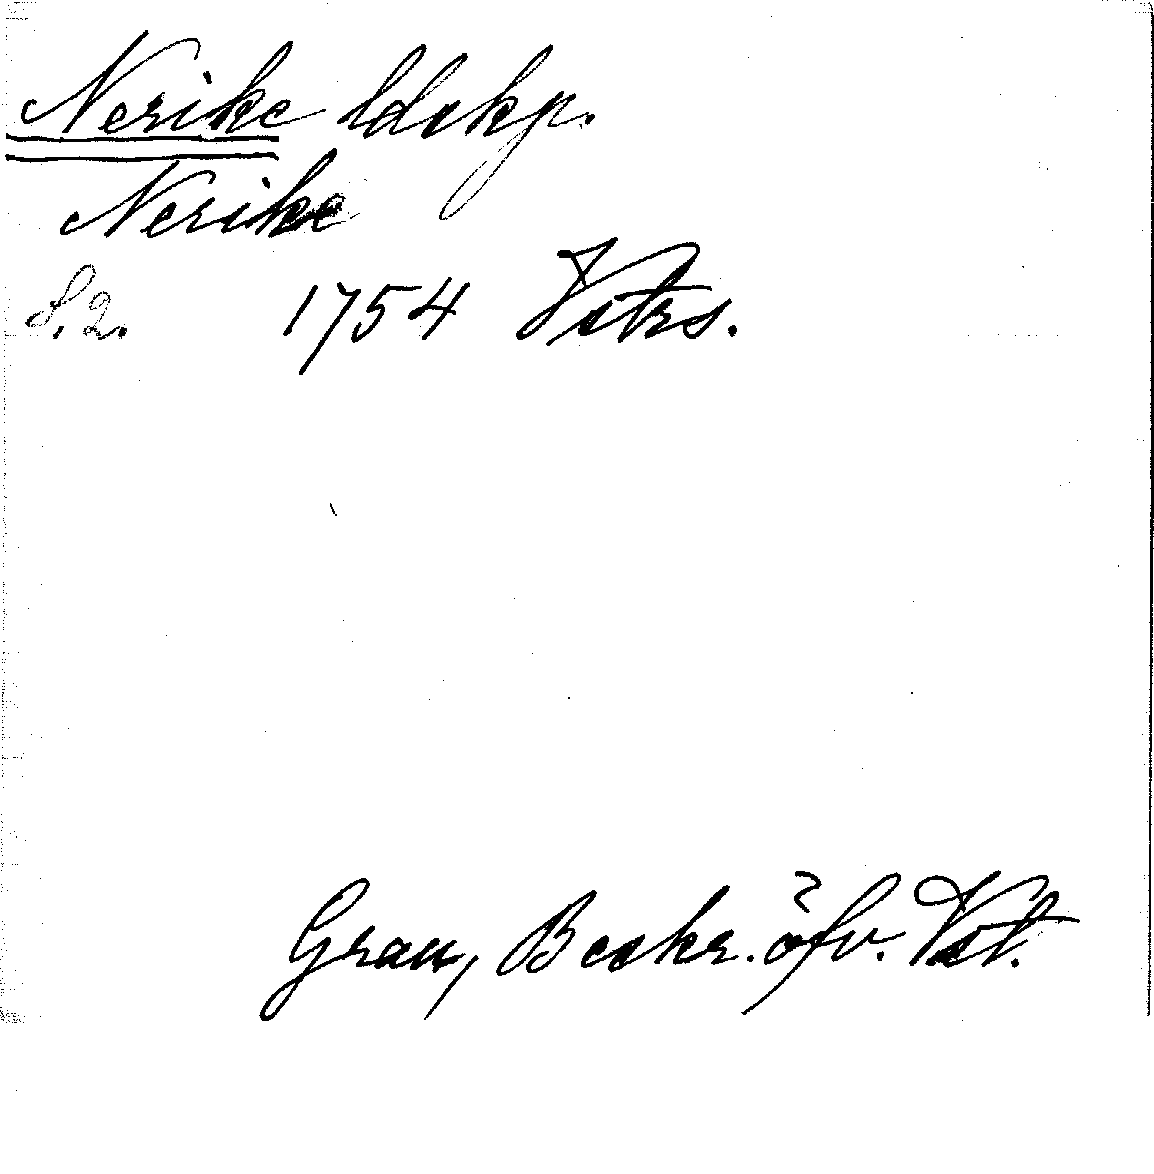 Nerike ldskp.
Nerike
S. 2. 1754 Vstrs.
Grau, Beskr. öfv. Vstl.